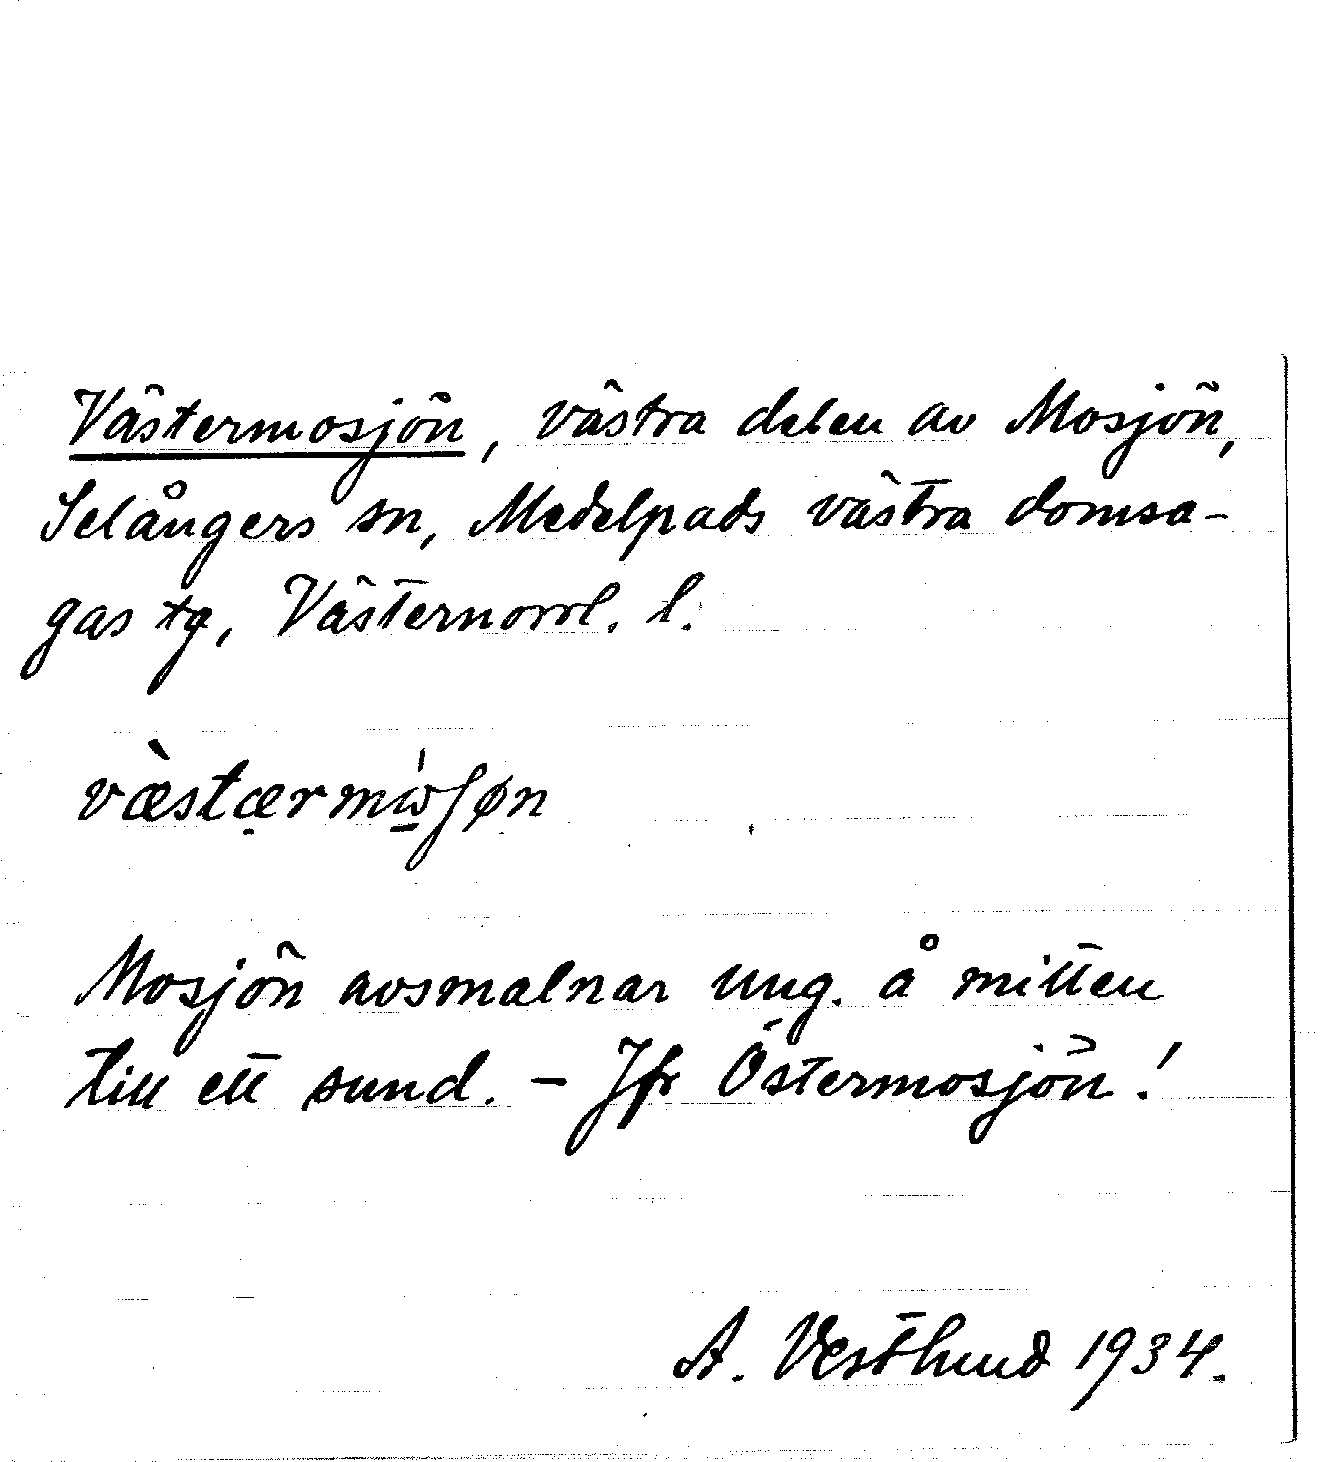 Västermosjön, västra delen av Mosjön,
Selångers sn, Medelpads västra domsa-
gas tg, Västernorrl. l.
væ̀stærmω̍ʃøn
Mosjön avsmalnar ung. å mitten
till ett sund. – Jfr Östermosjön!
A. Vestlund 1934.